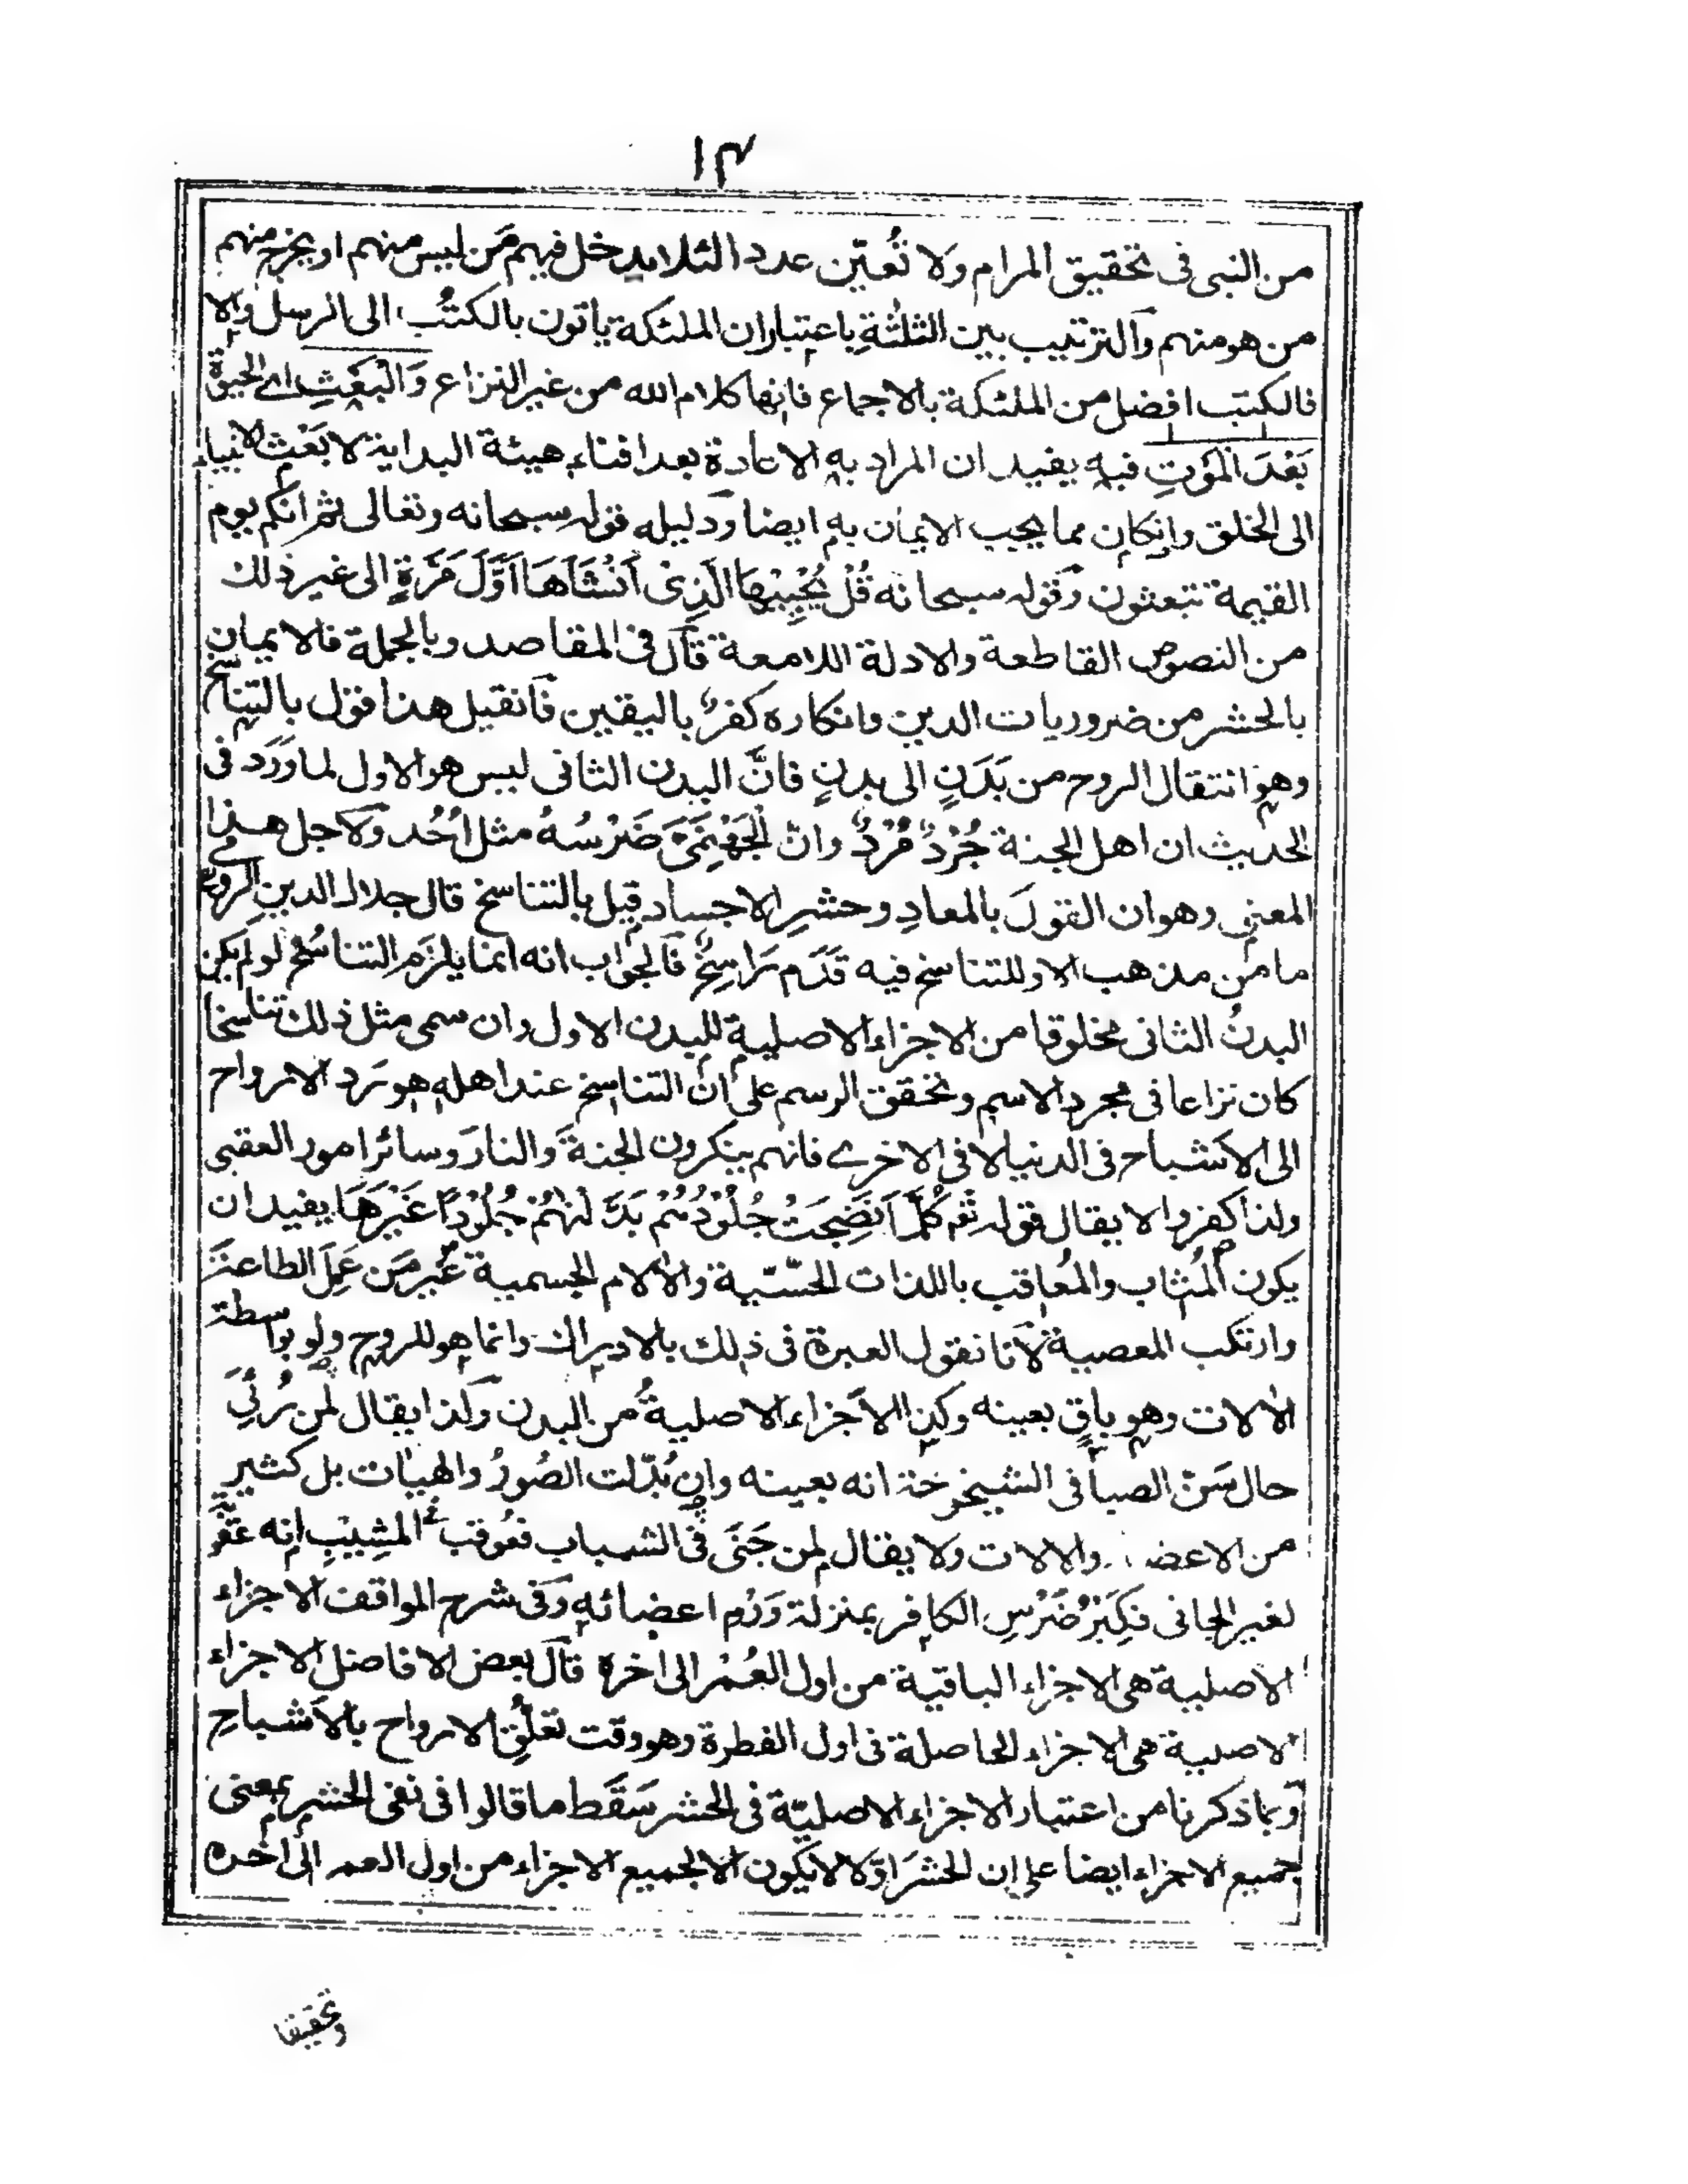 ١٣
من النبى فى تحقيق المرام وَلا نُعيّن عدد الئلايدخل فيهم مَن ليس منهم او يخرج منهم
من هو منهم وَالترتيب بين الثلثةِ باعتبار ان الملئكة ياتون بالكتُب الى الرسل والا
فالكتب افضل من الملئكة بالاجماع فانها كلام الله من غير النزاع وَالْبَعْثِ اى الحيوة
بَعْدَ الْمَوْتِ فيه يفيد ان المراد به الاعادة بعد افناء هيئة البداية لا بَعْث الانبياء
الى الخلق وان كان مما يجب الايمان به ايضا ودليله قوله سبحانه وتعالى ثم انكم يوم
القيمة تبعثون وقوله سبحانه قُلْ يُحْيِيْهَا الَّذِىْ اَنْشَاَهَا اَوَّلَ مَرَّةٍ الى غير ذلك
من النصوص القاطعة والادلة اللامعة قال فى المقاصد وبالجملة فالايمان
بالحشر من ضروريات الدين وانكاره كفرٌ باليقين فان قيل هذا قول بالتناسخ
وهو انتقال الروح من بَدَنٍ الى بدنٍ فانَّ البدن الثانى ليس هو الاول لما وَرَدَ فى
الحديث ان اهل الجنة جُرْدٌ مُرْدٌ وانّ الجَهَنَّمِىَّ ضَرْسُهُ مثل اُحُد وَلاجل هذا
المعنى وهو ان القولَ بالمعادِ وحشرِ الاجساد قيل بالتناسخ قال جلال الدين الرومى
ما من مذهب الا وللتناسخ فيه قَدَم رَاسِخٌ فالجواب انه انما يلزَم التناسُخ لو لم يكن
البدنُ الثانى مخلوقا من الاجزاء الاصلية للبدن الاول وان سمى مثل ذلك تناسخا
كان نزاعا فى مجرد الاسم وتحقق الرسم على ان التناسخ عند اهله هو رَد الارواح
الى الاشباح فى الدنيا لا فى الاخرى فانهم ينكرون الجنةَ والنارَ وسائر امور العقبى
ولذا كفروا لا يقال قوله تعم كُلَّمَا نَضِجَتْ جُلُوْدُهُمْ بَدَّلْنٰهُمْ جُلُوْدًا غَيْرَهَا يفيد ان
يكون المُثاب والمُعاقب باللذات الحسّيّة والالام الجسمية غيرَ مَن عَمِلَ الطاعة
وارتكب المعصية لانا نقول العبرة فى ذلك بالادراك وانما هو للروح ولو بواسطة
الالات وهو باقٍ بعينه وكذا الاجزاء الاصلية من البدن وَلذا يقال لمن رُئِىَ
حال سَنّ الصبا فى الشيخوخة انه بعينه وان بُدّلت الصُورُ والهيات بل كثير
من الاعضا والالات ولا يقال لمن جَنَى فى الشباب فعُوقب فى المشِيبِ انه عقوبة
لغير الجانى فكِبَرُ ضَرْسِ الكافر بمنزلة وَرْم اعضائه وَفى شرح المواقف الاجزاء
الاصلية هى الاجزاء الباقية من اول العُمُر الى اخره قال بعض الافاضل الاجزاء
الاصلية هى الاجزاء الحاصلة فى اول الفطرة وهو وقت تعلُّق الارواح بالاشباح
وبما ذكرنا من اعتبار الاجزاء الاصليّة فى الحشر سَقَط ما قالوا فى نفى الحشر بمعنى
جميع الاجزاء ايضا على ان الحشرَ اوّلا لا يكون الا لجميع الاجزاء من اول العمر الى اخره
وتحقيقا